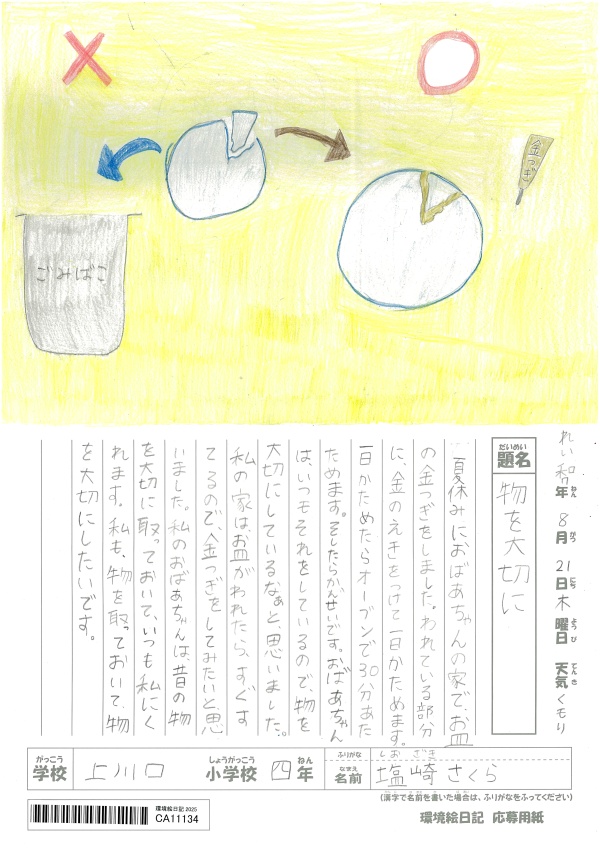 ごみばこ
金つぎ
れい和7年 8月 21日 木曜日 天気 くもり
ねん がつ にち ようび てんき
だいめい
題名
物を大切に
夏休みにおばあちゃんの家で、お皿
の金つぎをしました。われている部分
に、金のえきをつけて一日かためます。
一日かためたらオーブンで30分あた
ためます。そしたらかんせいです。おばあちゃん
は、いつもそれをしているので、物を
大切にしているなぁと、思いました。
私の家は、お皿がわれたら、すぐす
てるので、金つぎをしてみたいと思
いました。私のおばあちゃんは、昔の物
を大切に取っておいて、いつも私にく
れます。私も、物を取っておいて、物
を大切にしたいです。
がっこう しょうがっこう ねん
学校 上川口 小学校 四年
ふりがな しおざき
なまえ
名前 塩崎さくら
(漢字で名前を書いた場合は、ふりがなをふってください)
環境絵日記 2025
CA11134
環境絵日記 応募用紙